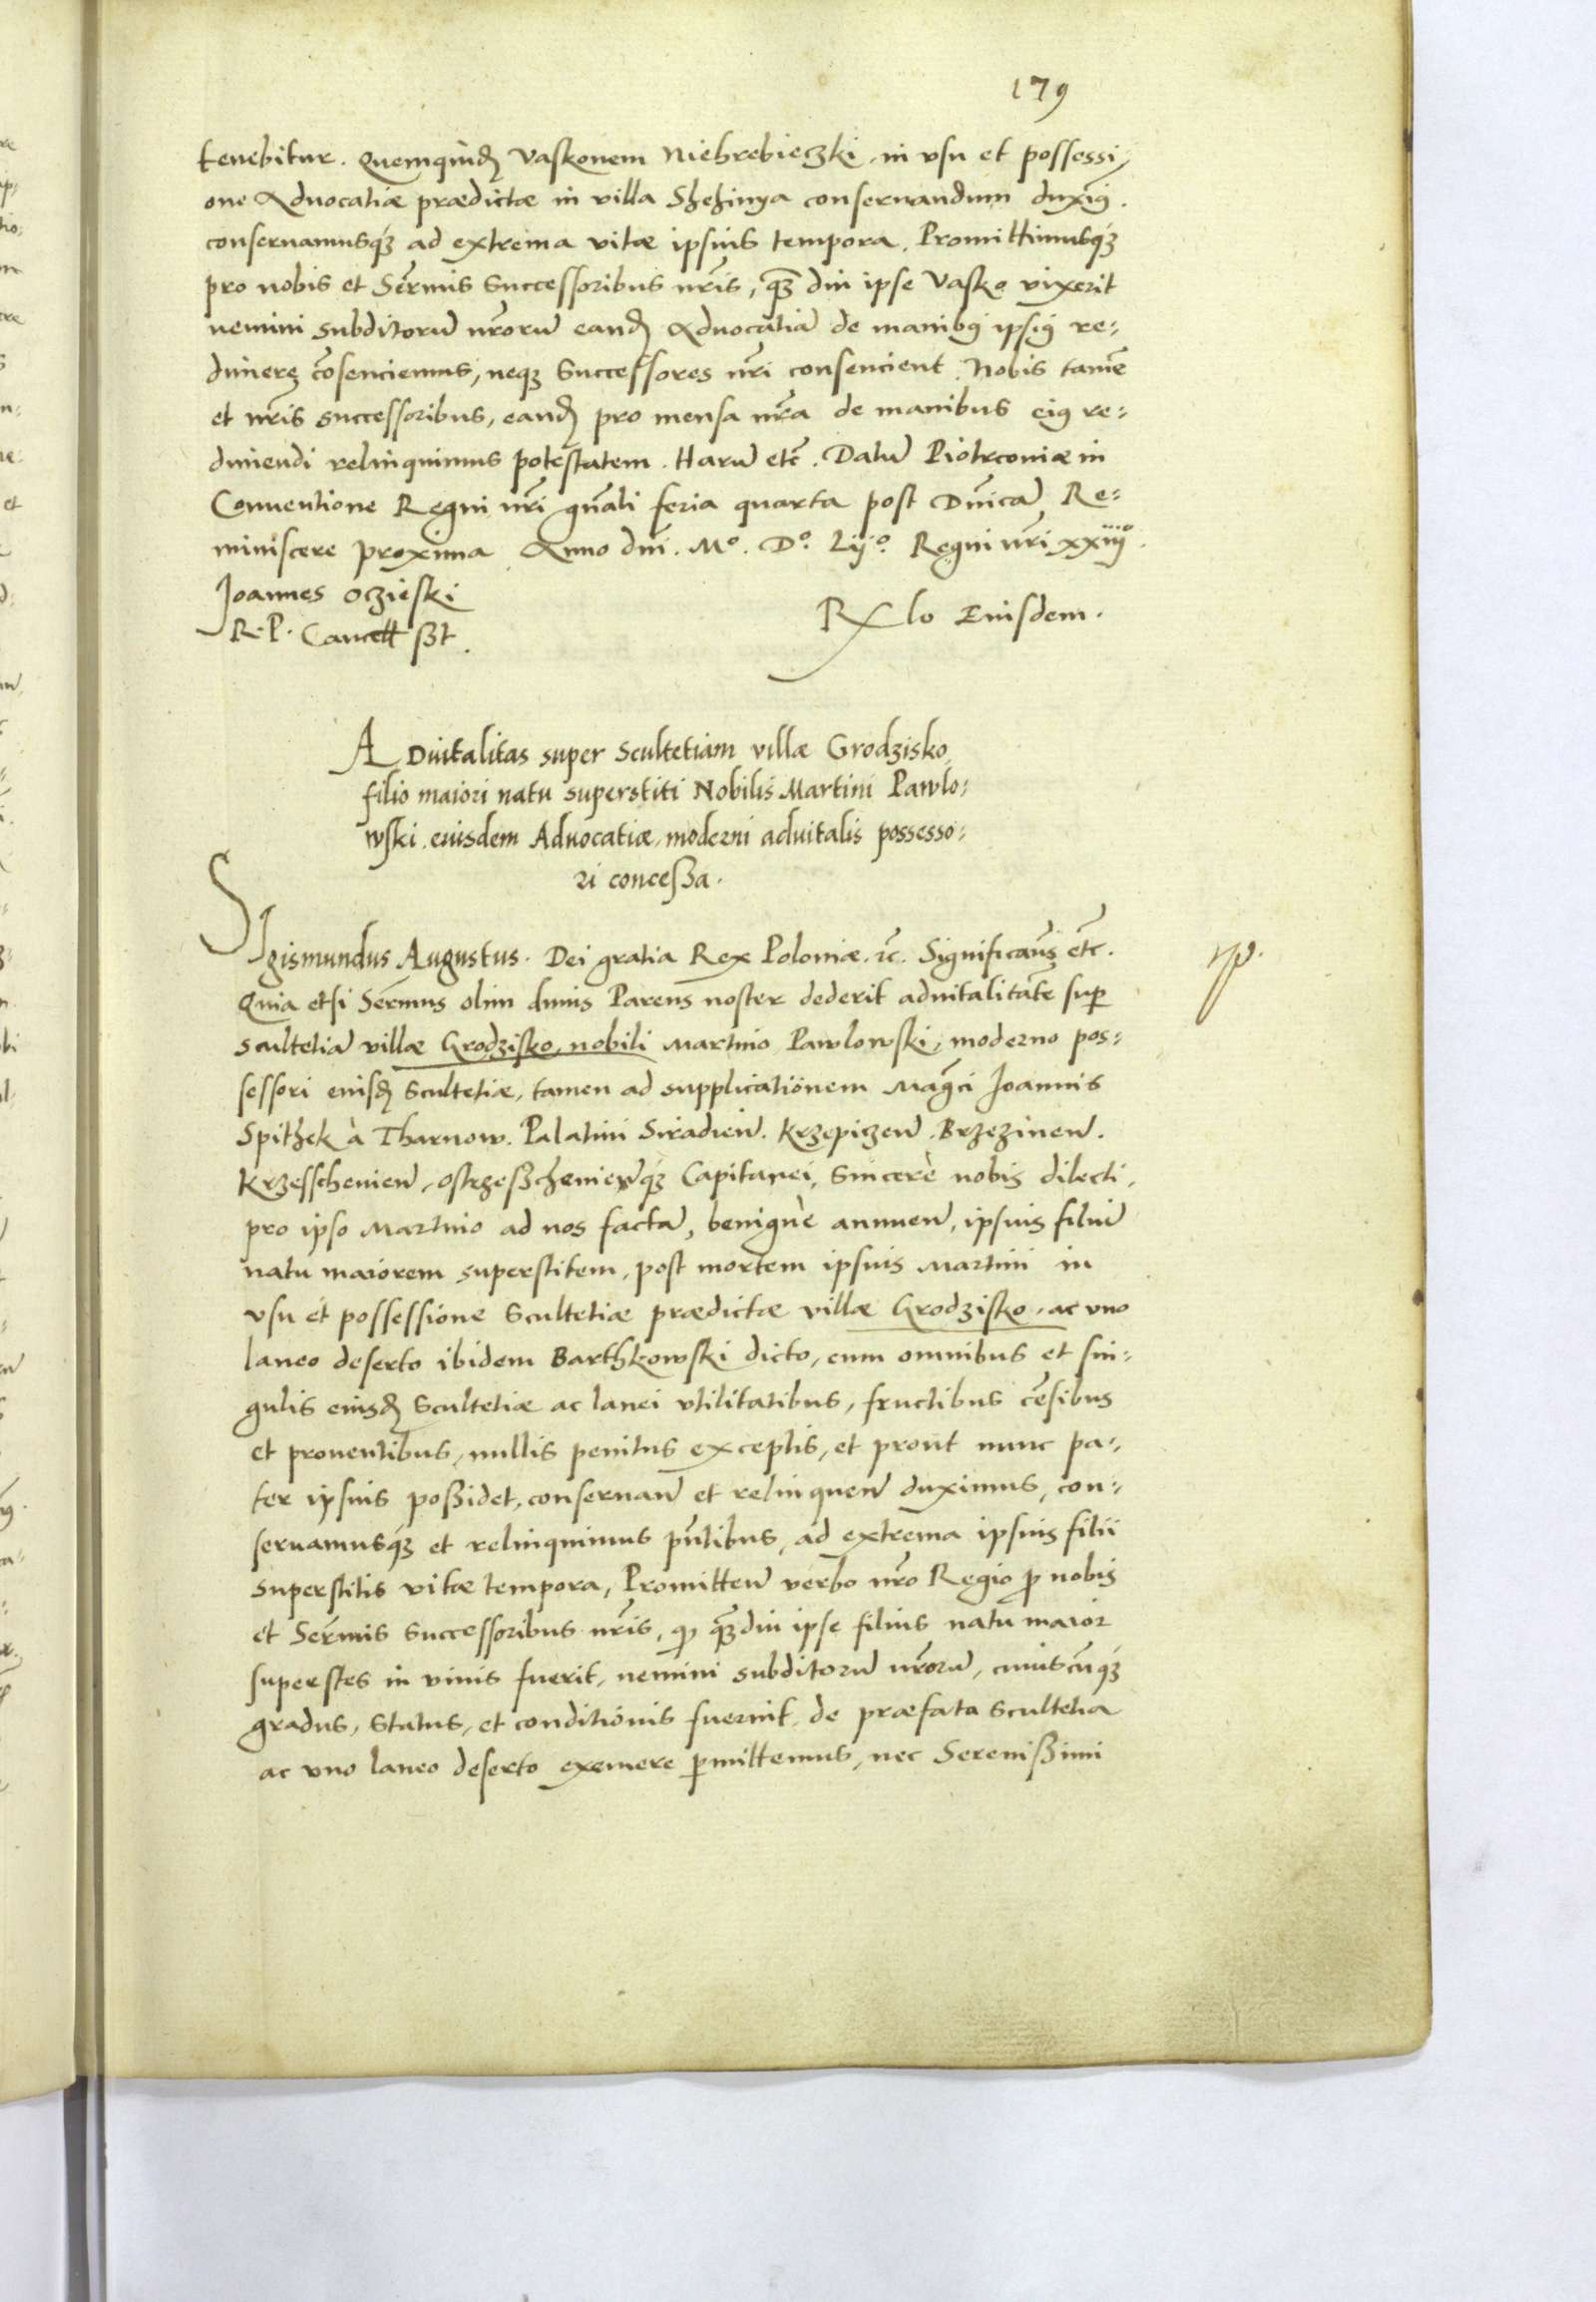 179
tenebitur. Quemquidẽ Vaskonem Niehrebieczki, in vsu et possessi,
one Aduocatiæ prædictæ in villa Shehinya conseruandum duxim9.
conseruamusq3 ad extrema vitæ ipsius tempora. Promittimusq3
pro nobis et Sermis Successoribus nris, q̃3 diu ipse Vasko vixerit
nemini subditorũ nrorũ eandẽ Aduocatiã de manib9 ipsi9 re:
dimere cõsenciemus, neq3 Successores nri consencient. Nobis tamẽ
et nris successoribus, eandẽ pro mensa nra de manibus ei9 re:
dimendi relinquimus potestatem. Harũ etc̃. Datũ Piotrconiæ in
Conuentione Regni nri gnãli feria quarta post Dnicã Re:
miniscere proxima Anno dni. Mº. Dº. Lijº. Regni nri xxiijº.
Joannes Oczieski
R. P. Cancell sst.
Rlo Eiusdem.
ADuitalitas super Scultetiam villæ Grodzisko
filio maiori natu superstiti Nobilis Martini Pawlo:
wski, eiusdem Aduocatiæ, moderni aduitalis possesso:
ri concessa.
SJgismundus Augustus. Dei gratia Rex Poloniæ. rc. Significam9 etc̃.
Quia etsi Sermus olim diuus Parens noster dederit aduitalitatẽ sup
scultetiã villæ Grodzisko, nobili Martino Pawlowski, moderno pos:
sessori eiusdẽ Scultetiæ, tamen ad supplicationem Magci Joannis
Spithek à Tharnow. Palatini Siradieñ. Krzepiczeñ. Brzezineñ.
Krzesscheuieñ, Ostrzesscheuieñq3 Capitanei, Sincerè nobis dilecti,
pro ipso Martino ad nos factã, benignè annueñ, ipsius filiũ
natu maiorem superstitem, post mortem ipsius Martini in
vsu et possessione Scultetiæ prædictæ villæ Grodzisko, ac vno
laneo deserto ibidem Barthkowski dicto, cum omnibus et sin:
gulis eiusdẽ Scultetiæ ac lanei vtilitatibus, fructibus cẽsibus
et prouentibus, nullis penitus exceptis, et prout nunc pa:
ter ipsius possidet, conseruañ et relinqueñ duximus, con:
seruamusq3 et relinquimus pñtibus, ad extrema ipsius filii
superstitis vitæ tempora, Promitteñ verbo nro Regio p nobis
et Sermis Successoribus nris, q q̃3diu ipse filius natu maior
superstes in viuis fuerit, nemini subditorũ nrorũ, cuiuscũq3
gradus, status, et conditionis fuerint, de præfata scultetia
ac vno laneo deserto exemere pmittemus, nec Serenissimi